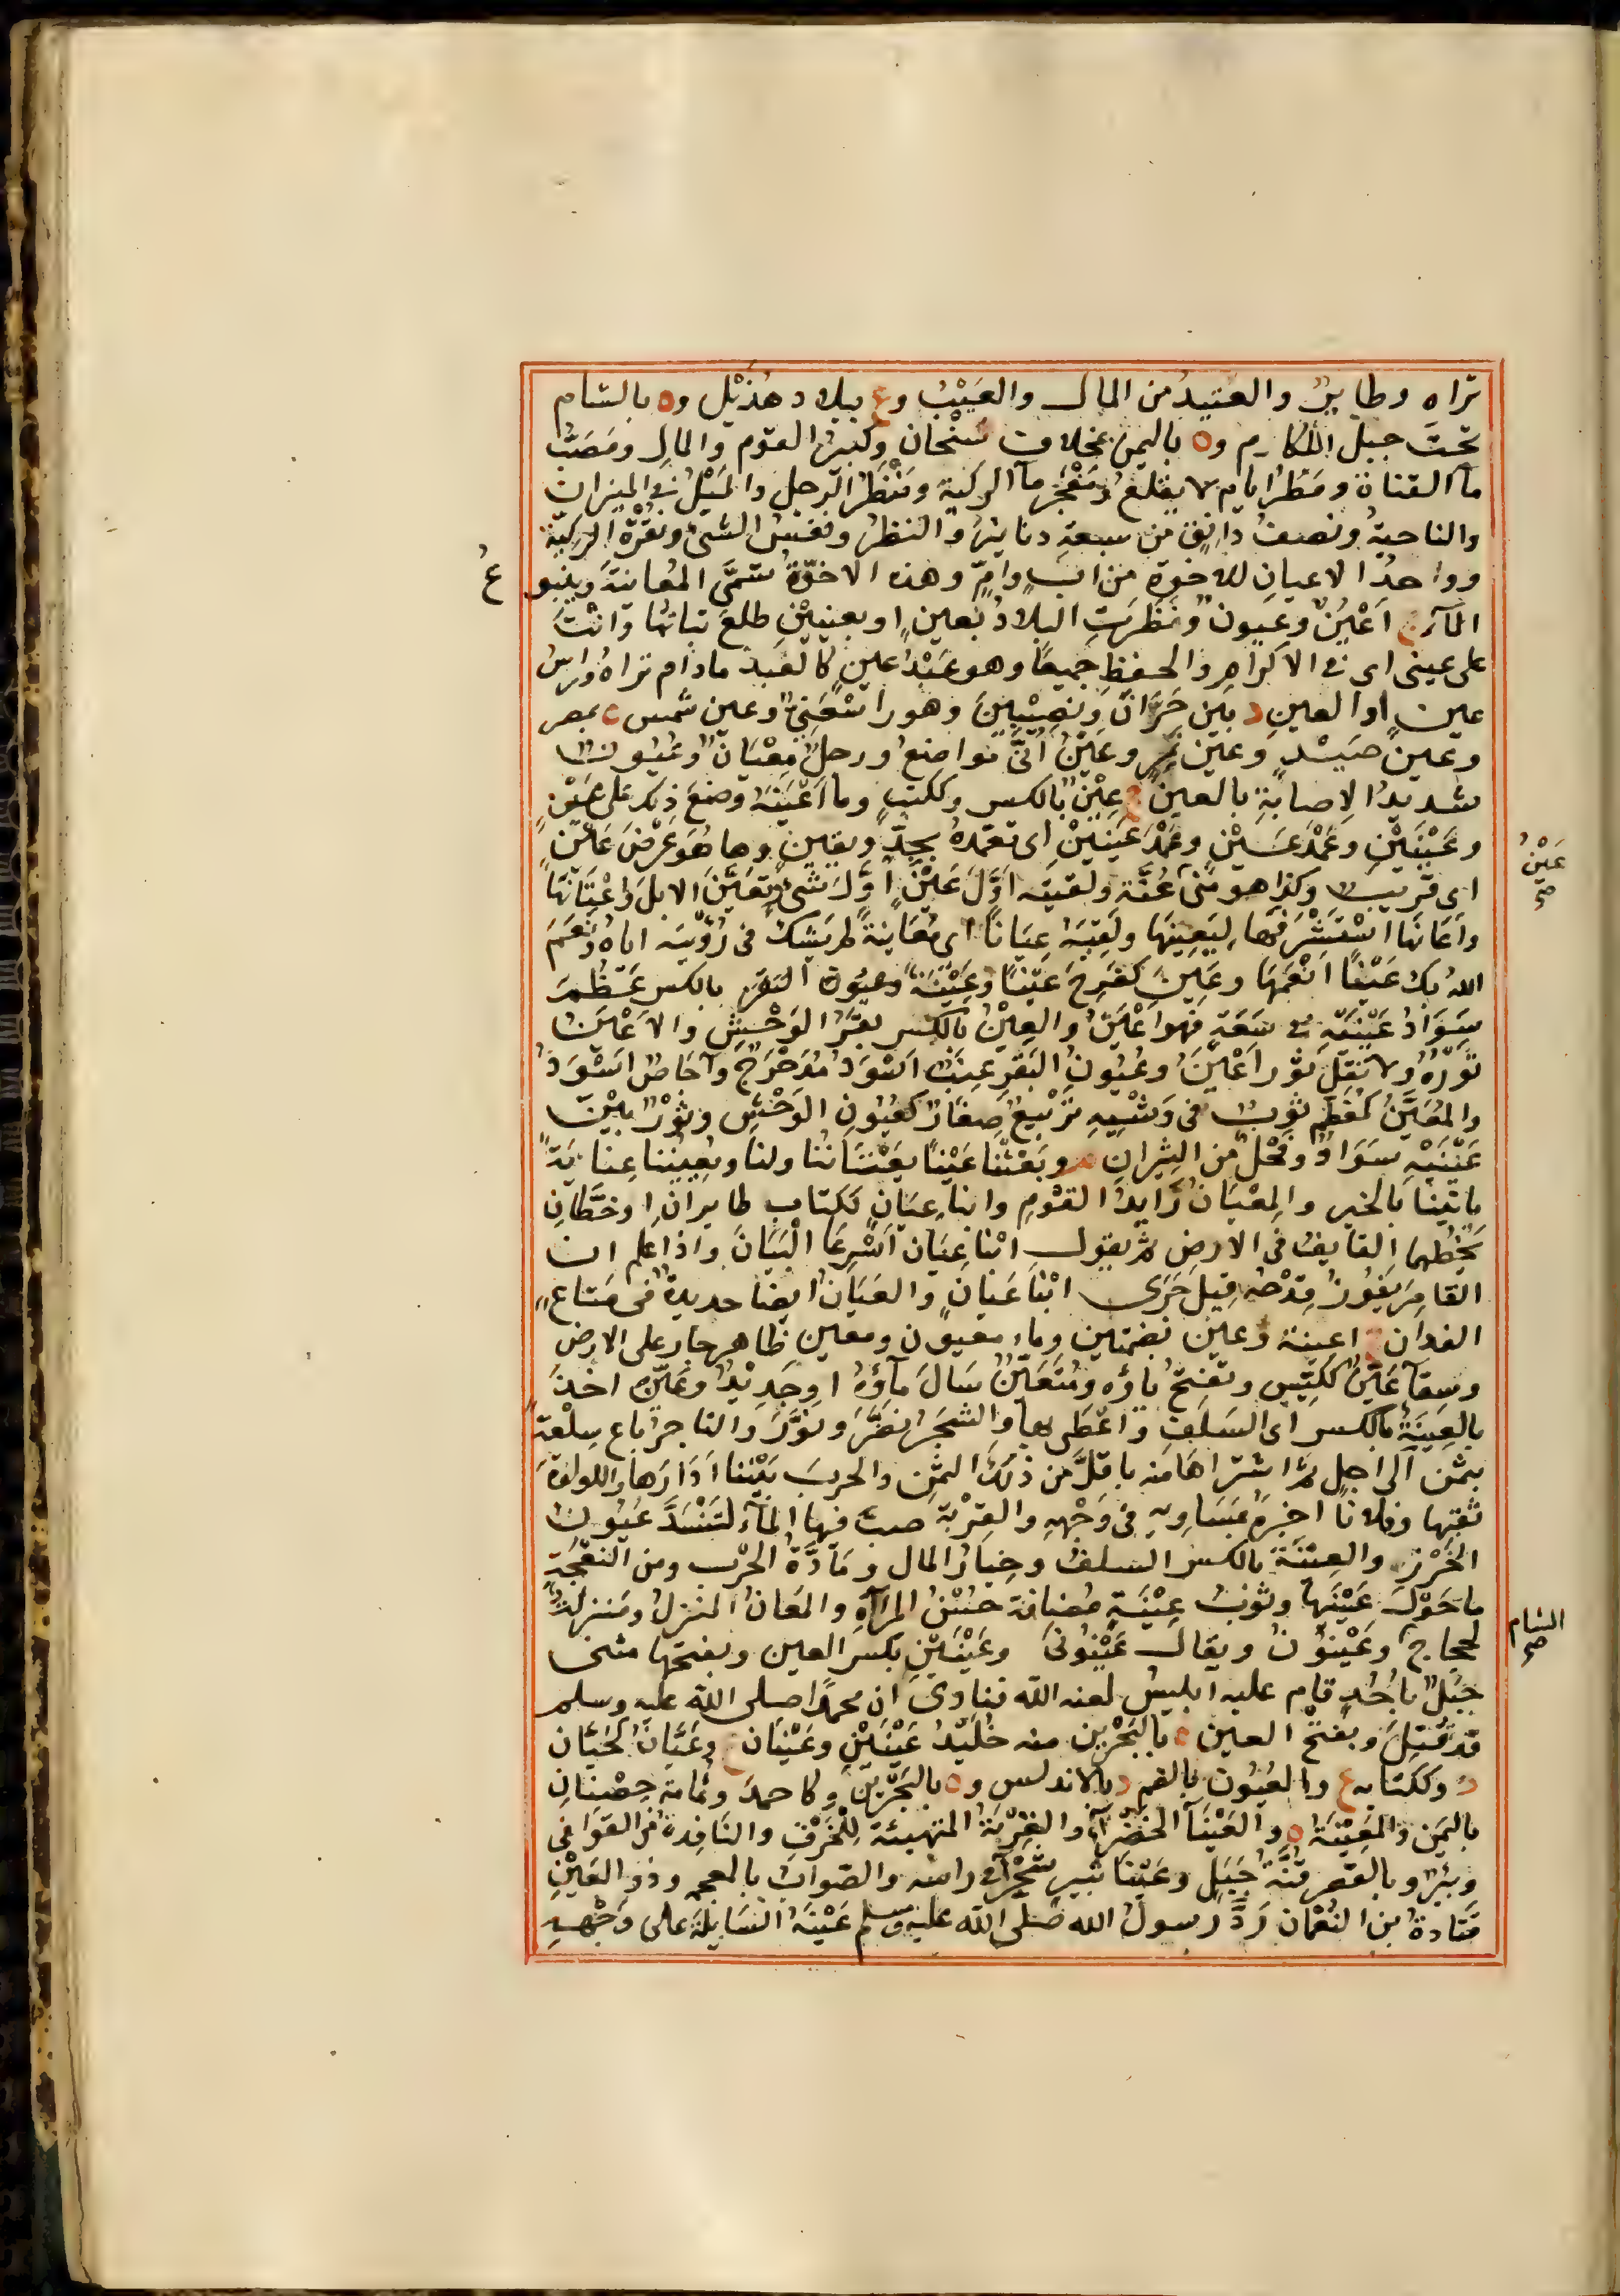 تراه وطاير والعتيد من المال والعيب وع ببلاد هذيل وه بالشام
تحت جبل اللكام وه باليمن بمخلاف سنحان وكبير القوم والمال ومصب
مآ القناة ومطر ايام لا يقلع ومفجر مآ الركية ومنظر الرجل والميل في الميزان
والناحية ونصف دانق من سبعة دنانير والنظر ونفس الشئ ونقرة الركبة
وواحد الاعيان للاخوة من اب وام وهذه الاخوة تسمى المعاينة وينبوع
المآء ج اعين وعيون ونظرت البلاد بعين او بعينين طلع نباتها وانت
على عيني اي في الاكرام والحفظ جميعا وهو عبد عين كالعبد مادام تراه وراس
عين او العين د بين حران ونصيبين وهو راسعني وعين شمس ه بمصر
وعين صيد وعين تمر وعين اني مواضع ورجل معيان وعيون
شديد الاصابة بالعين ج عين بالكسر وككتب وما اعينه وصنع ذلك على عين
وعينين وعمد عين وعمد عينين اي تعمده بجد ويقين وها هو عرض عين
اي قريب وكذا هو مني عنة ولقيته اول عين اول شئ وتعين الابل واعتانها
واعانها استشرفها ليعينها ولقيته عيانا اي معاينة لم يشك في رؤيته اياه ونعم
الله بك عينا انعمها وعين كفرح عينا وعينة وعيون البقر بالكسر عظم
سواد عينه في سعة فهو اعين والعين بالكسر بقر الوحش والاعين
ثوره ولا تقل ثور اعين وعيون البقر عنب اسود مدحرج واجاص اسود
والمعين كمعظم ثوب في وشيه تربيع صغار كعيون الوحش وثور بين
عينيه سواد وفحل من الثيران م وبعثنا عينا يعتاننا ولنا ويعيننا عناية
ياتينا بالخبر والمعيان رايد القوم وابنا عيان ككتاب طايران او خطان
يخطهما القايف في الارض ثم يقول ابنا عيان اسرعا البيان واذا علم ان
القامر يفوز قدحه قيل جرى ابنا عيان والعيان ايضا حديدة في متاع
الفدان ج اعينة وعين بضمتين وماء معيون ومعين ظاهر جار على الارض
وسقآ عين ككيس وتفتح ياؤه ومتعين سال مآؤه او جديد وعين اخذ
بالعينة بالكسر اي السلف واعطى بها والشجر نضر ونور والتاجر باع سلعته
بثمن الى اجل ثم اشتراها منه باقل من ذلك الثمن والحرب بيننا ادارها واللولوة
ثقبها وفلانا اخبره بمساويه في وجهه والقربة صب فيها المآء لتنسد عيون
الخرز والعينة بالكسر السلف وخيار المال ومادة الحرب ومن النعجة
ما حول عينيها وثوب عينة مضافة حسن المرآة والمعان المنزل ومنزلة
لحجاج الشام وعينون ويقال عينونى وعينين بكسر العين وبفتحها مثنى
جبل باحد قام عليه ابليس لعنه الله فنادى ان محمدا صلى الله عليه وسلم
قد قتل وبفتح العين ه بالبحرين منه خليد عينين وعينان ع وعيان كحيان
د وككتاب ع والعيون بالضم د بالاندلس وه بالبحرين وكاحمد وثمامة حصنان
باليمن والمعينة ه والعينآ الخضرآء والقربة المتهيئة للخرق والنافذة من القوافي
وبئر وبالقصر قنة جبل وعينا ثبير شجرآ في راسه والصواب بالمعجمه وذو العين
قتادة بن النعمان رد رسول الله صلى الله عليه وسلم عينه السايلة على وجهه
ع
عين صح
الشام صح